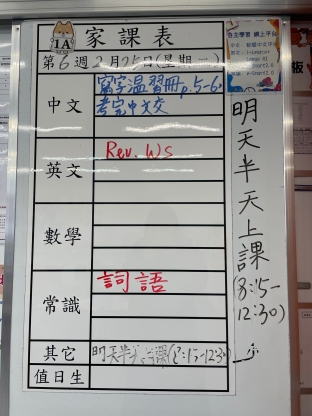 1A 家課表
第6週2月25日(星期二)
中文
寫字溫習冊p.5-6
考完中文交
英文
Rev. Ws
數學
常識
詞語
其它
明天半天上課(8:15-12:30)
值日生
自主學習 網上平台
明天半天上課
(8:15-
12:30)